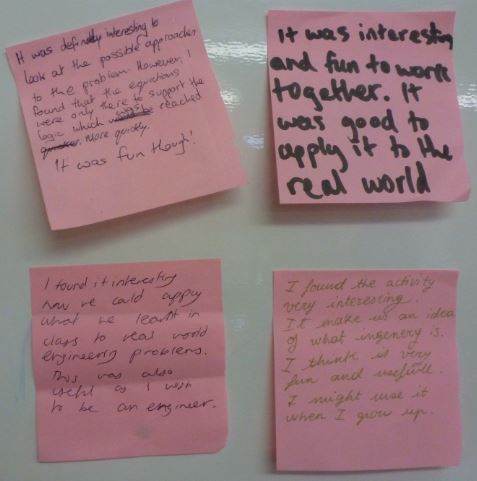 It was definitely interesting to
look at the possible approaches
to the problem. However, I
found that the equations
were only there to support the
logic which was reached
more quickly.
It was fun though!
It was interesting
and fun to work
together. It
was good to
apply it to the
real world
I found it interesting
how we could apply
what we learnt in
class to real world
engineering problems.
This was also
useful as I wish
to be an engineer.
I found the activity
very interesting.
It make us an idea
of what ingenery is.
I think is very
fun and usefull.
I might use it
when I grow up.